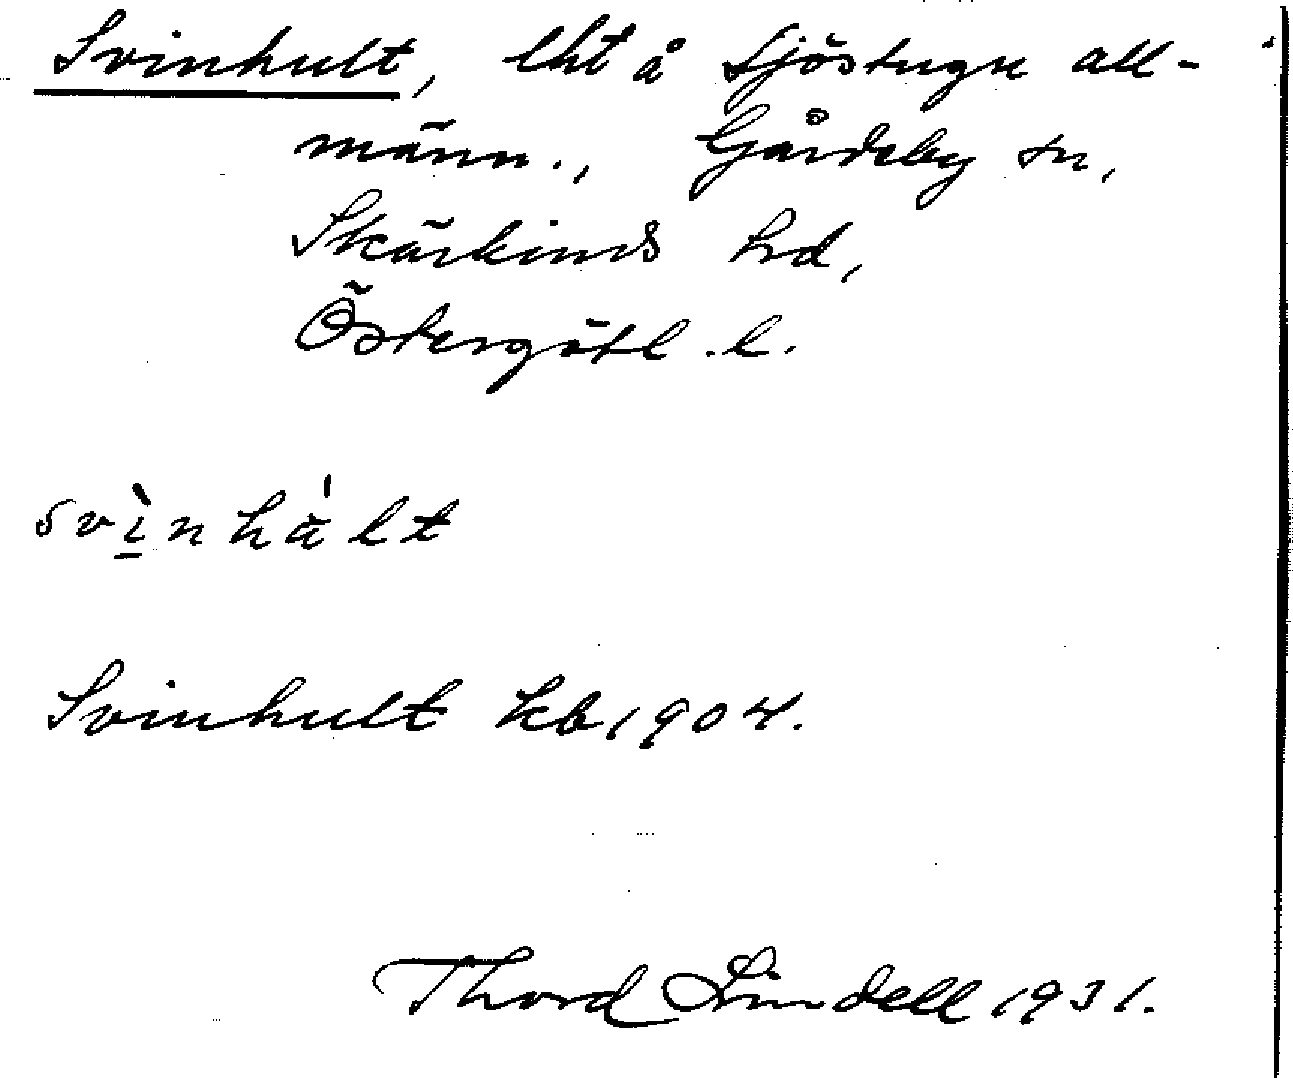 Svinhult, lht å Sjöstugu all-
männ., Gårdeby sn,
Skärkinds hd,
Östergötl. l.
svìnhà́lt
Svinhult kb 1904.
Thord Lindell 1931.